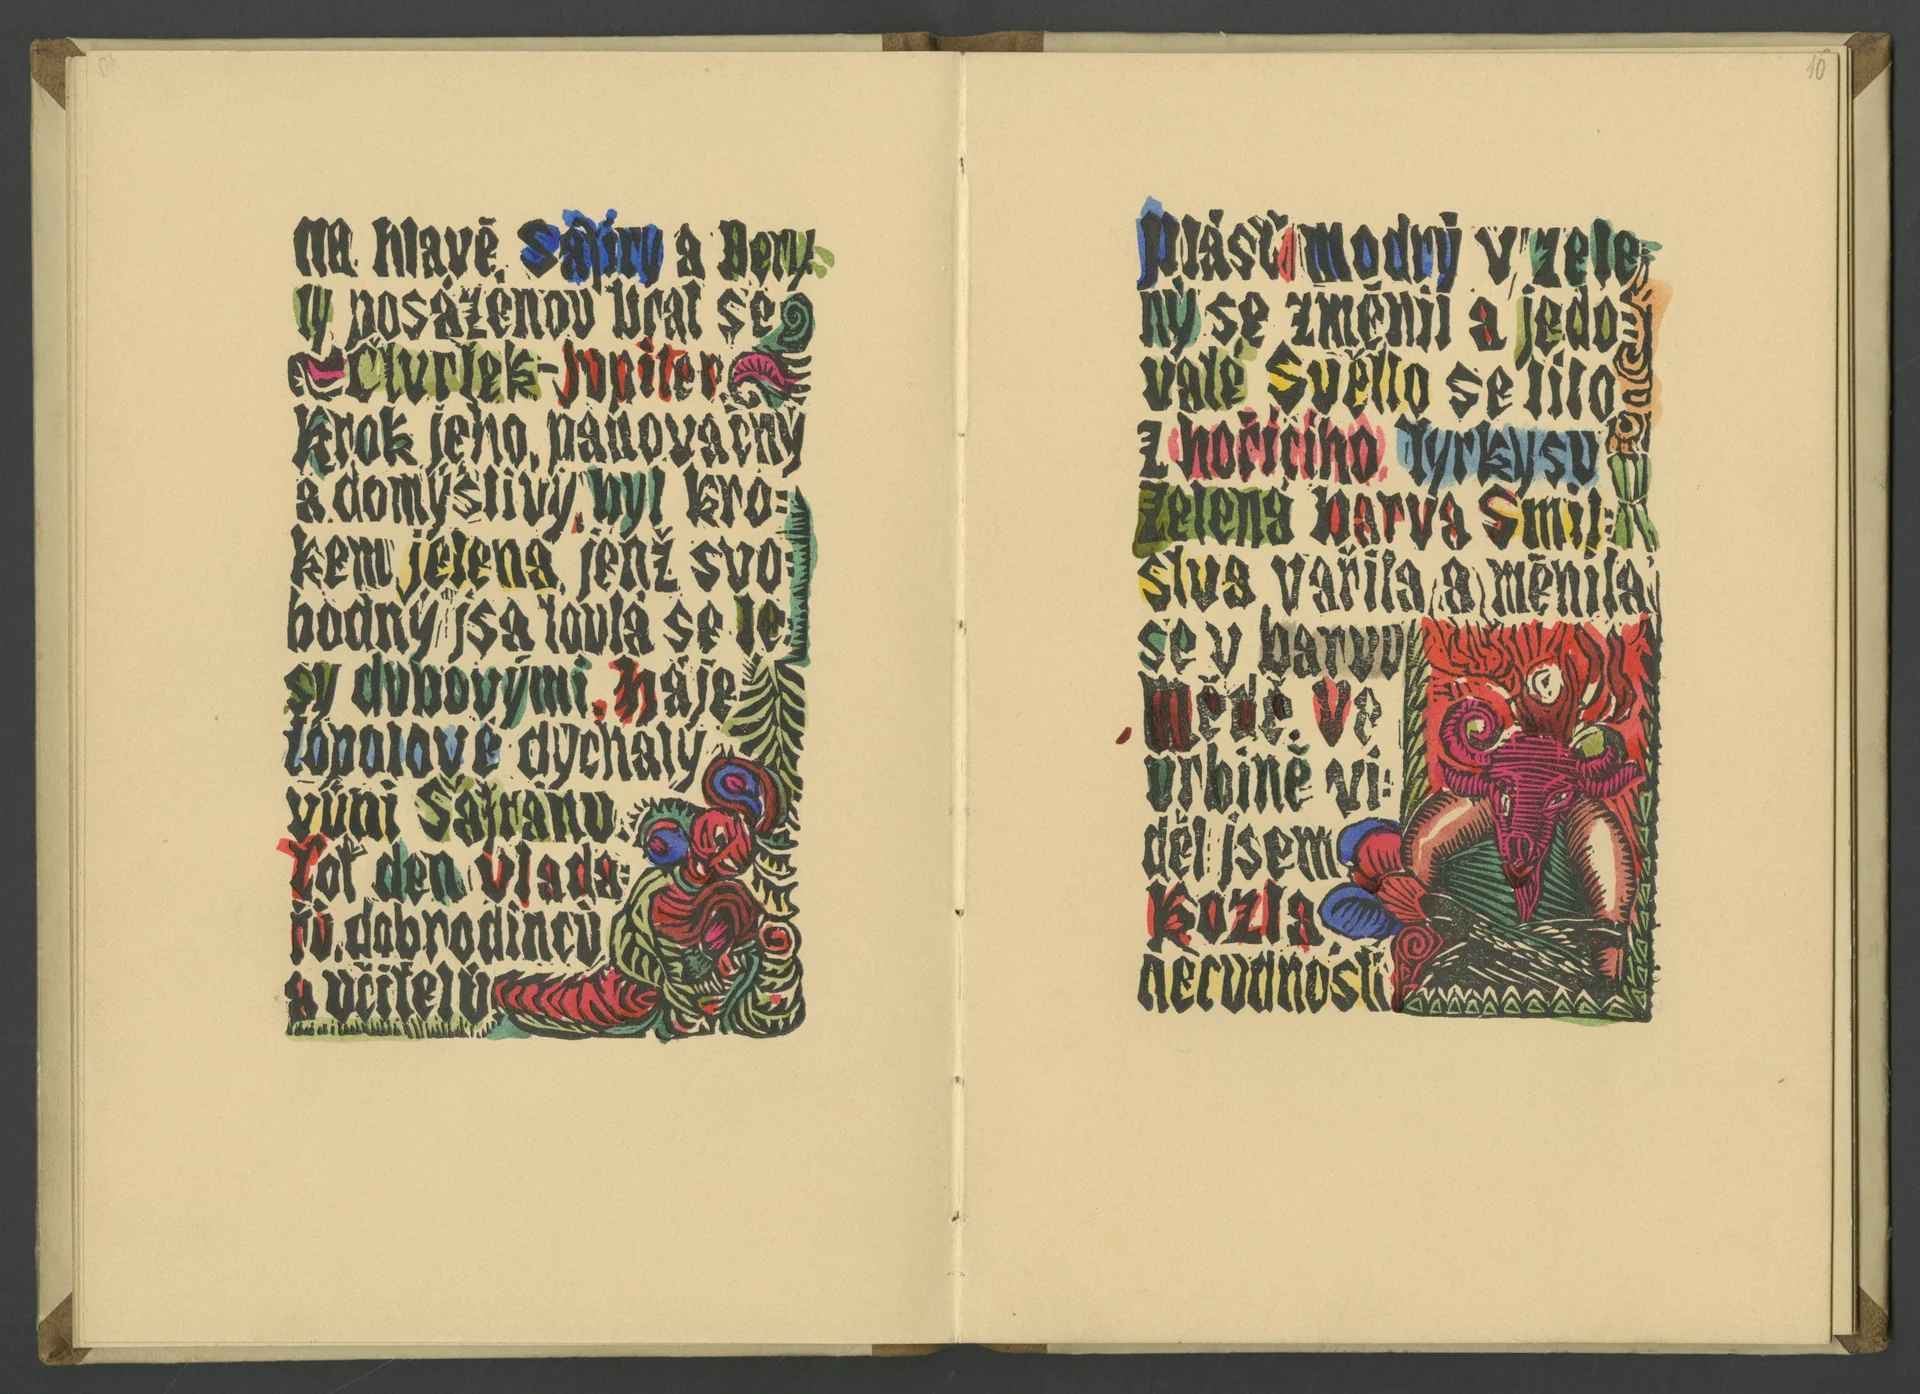 Na hlavě Safíry a Bery
ly posázenou bral se
Čtvrtek-Jupiter
Krok jeho, panovačný
a domýšlivý, byl kro=
kem jelena, jenž svo=
bodný jsa toulá se le=
sy dubovými. Háje
topolové dýchaly
vůni Šafránu.
Toť den vlada=
řů, dobrodinců
a učitelů
10
Plášť modrý v zele
ný se změnil a jedo
vaté Světlo se lilo
z hořícího Tyrkysu
Zelená barva Smil=
stva vařila a měnila
se v barvu
Mědě. Ve
vrbině vi=
děl jsem
Kozla
necudnosti